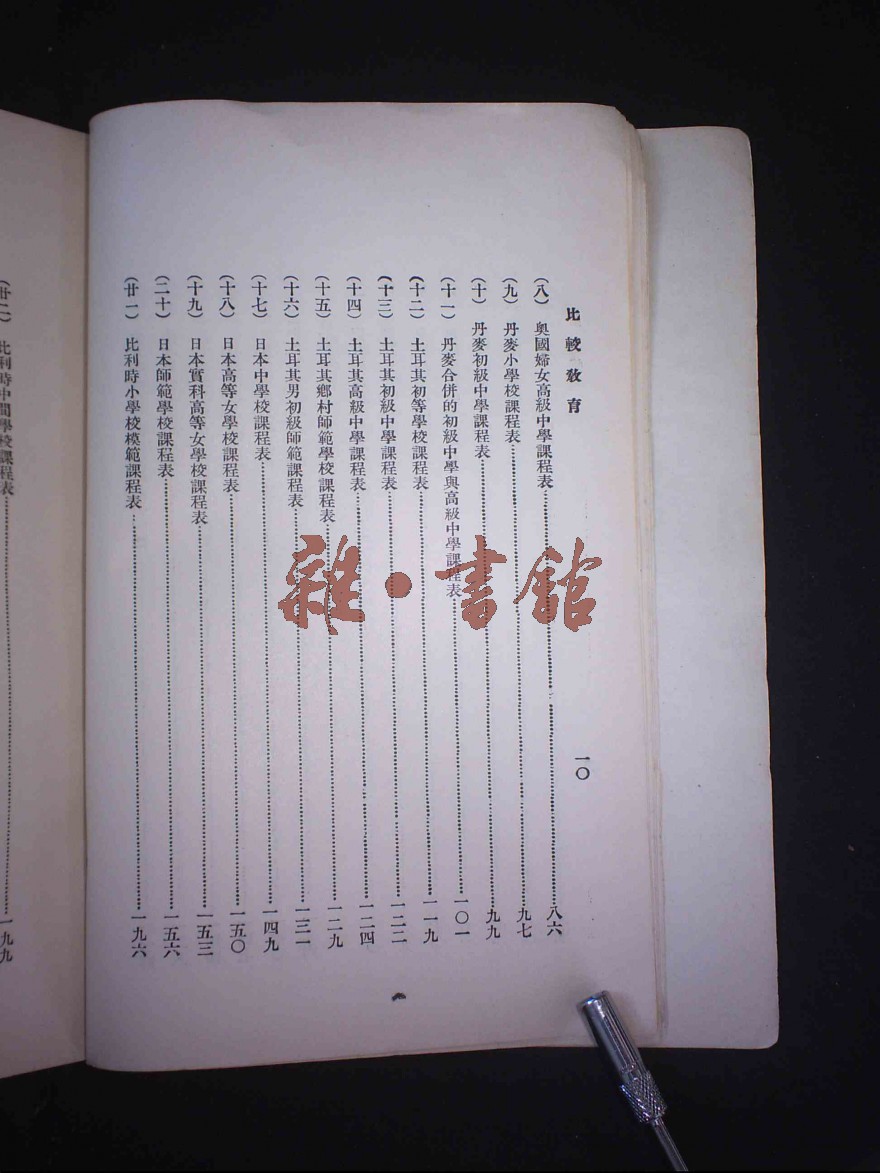 比較教育
一〇
(八) 奧國婦女高級中學課程表……八六
(九) 丹麥小學校課程表……九七
(十) 丹麥初級中學課程表……九九
(十一) 丹麥合併的初級中學與高級中學課程表……一〇一
(十二) 土耳其初等學校課程表……一一九
(十三) 土耳其初級中學課程表……一二二
(十四) 土耳其高級中學課程表……一二四
(十五) 土耳其鄉村師範學校課程表……一二九
(十六) 土耳其男初級師範課程表……一三一
(十七) 日本中學校課程表……一四九
(十八) 日本高等女學校課程表……一五〇
(十九) 日本實科高等女學校課程表……一五三
(二十) 日本師範學校課程表……一五六
(廿一) 比利時小學校模範課程表……一九六
(廿二) 比利時中間學校課程表……一九九
雜·書館